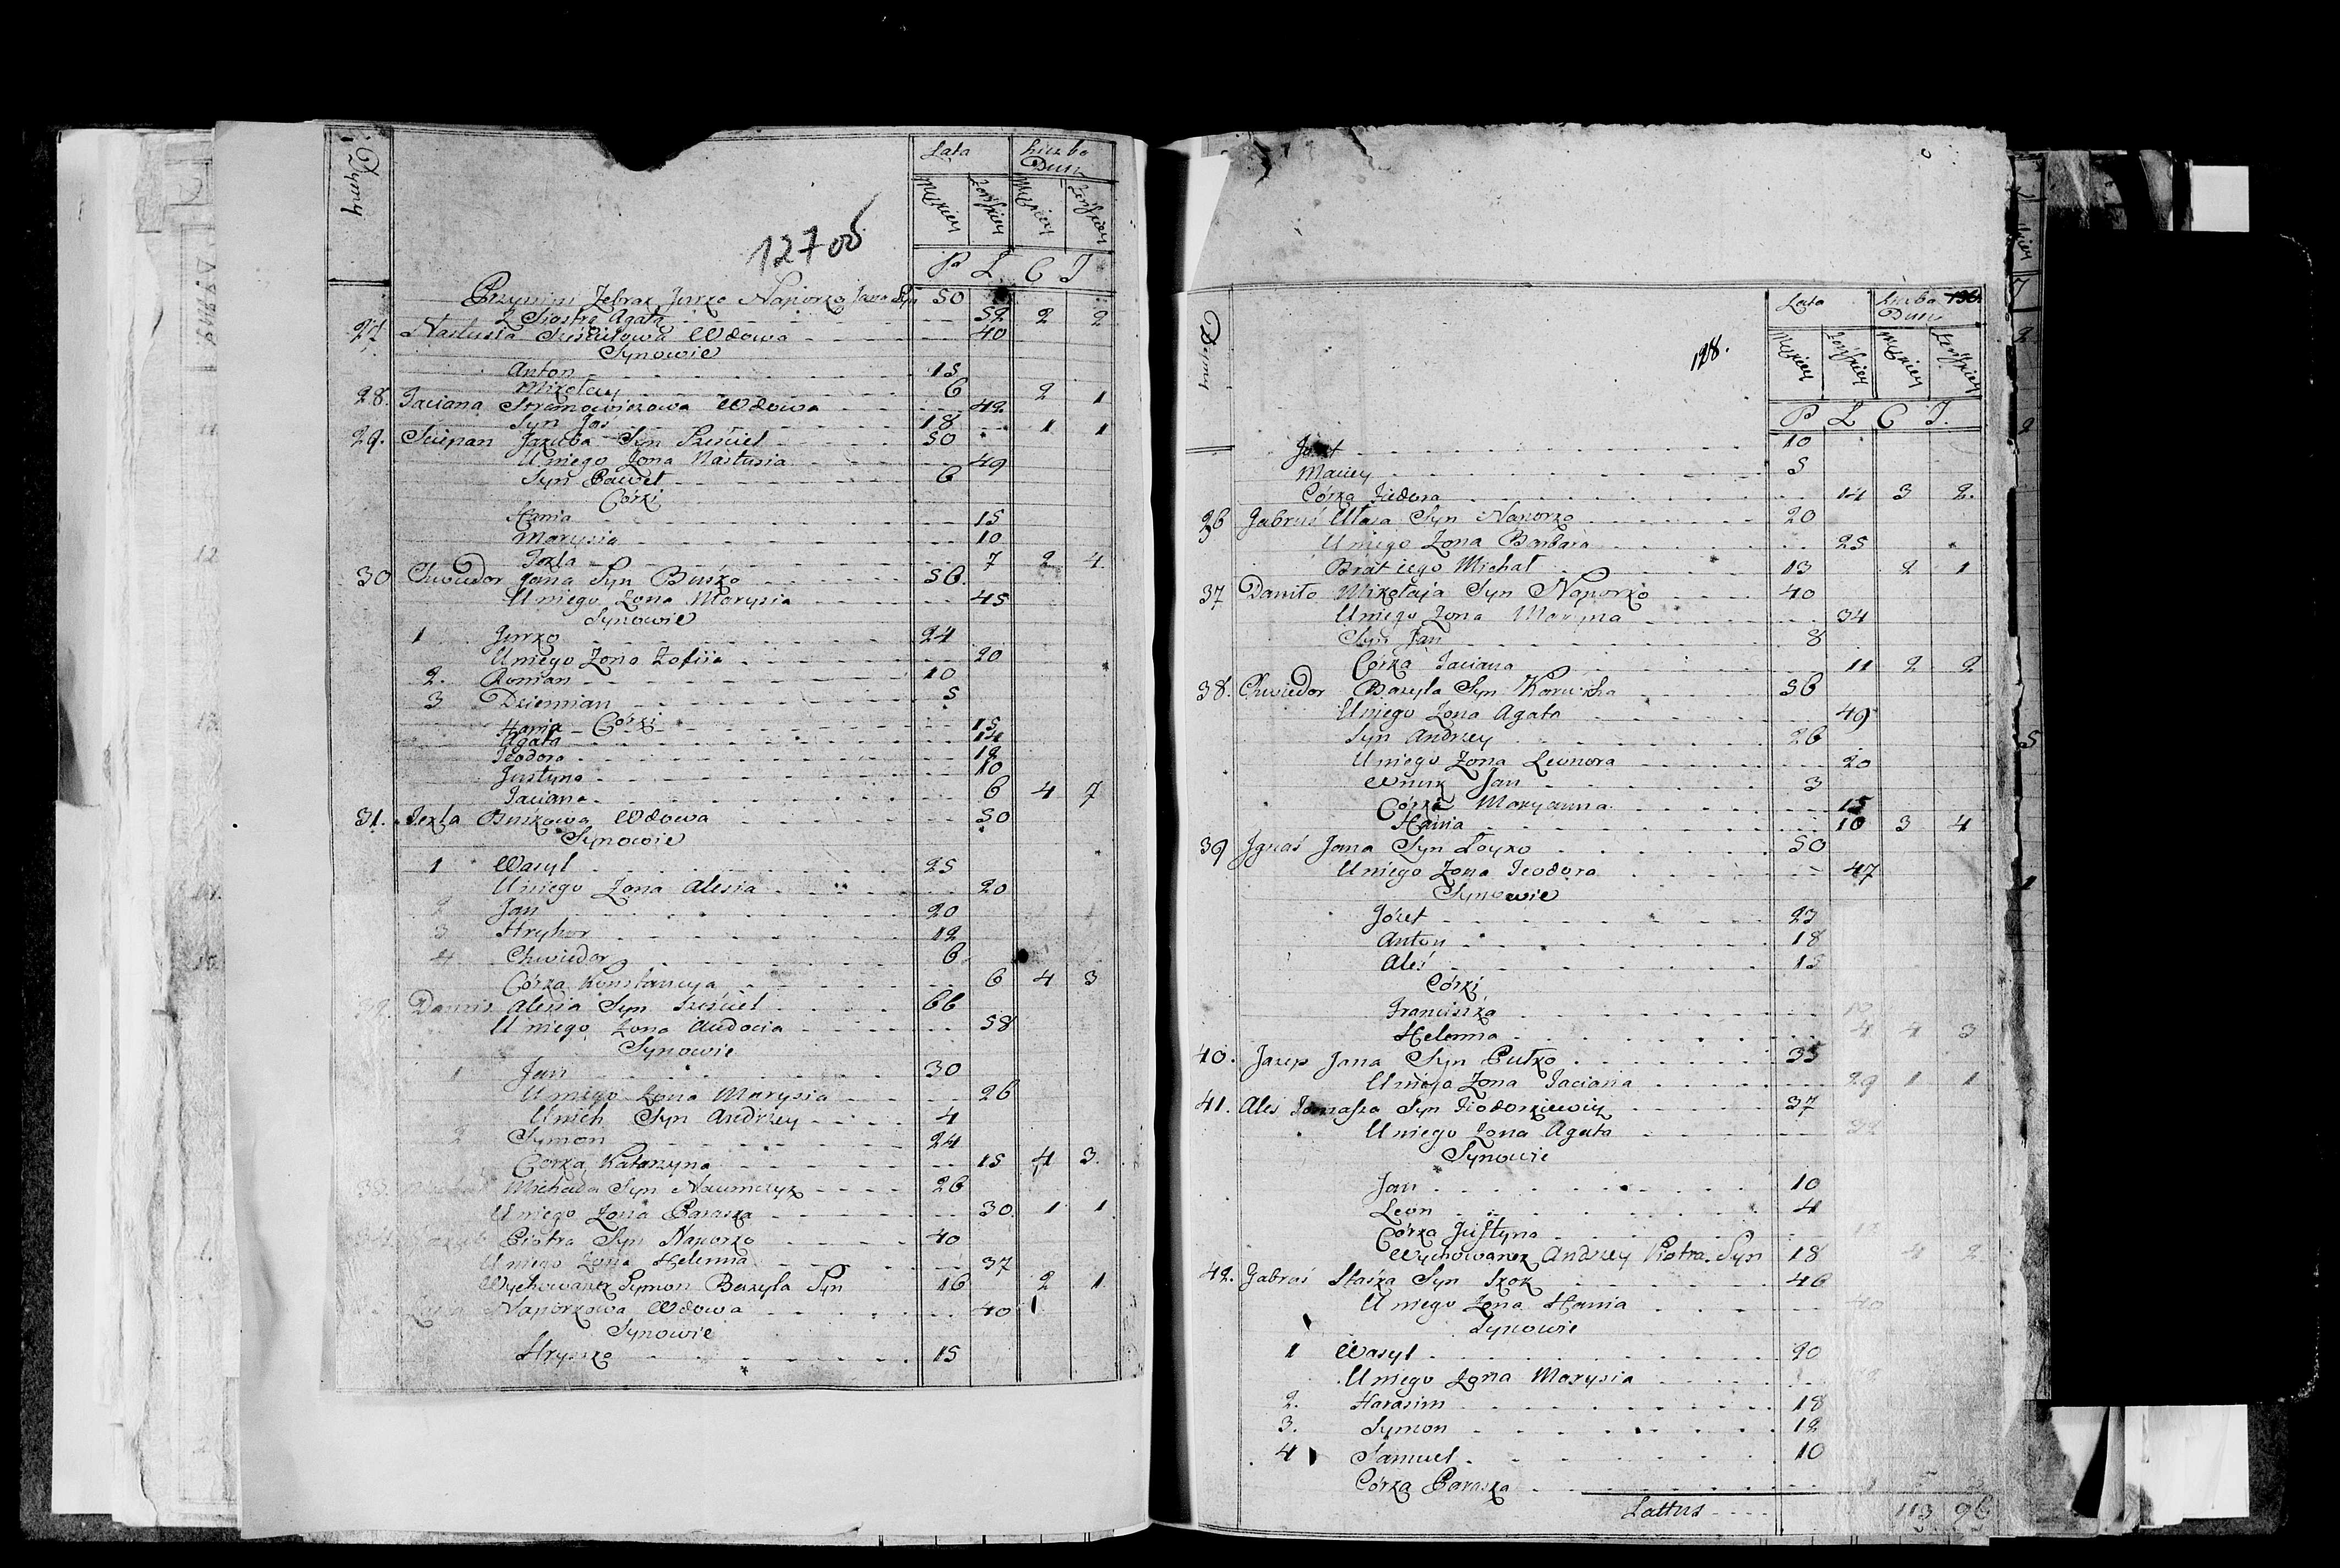 Dymy
Lata
Liczba
Dusz
Męzkiey Zeńskiey Męzkiey Zeńskiey
127 об
P L C T
Przynim Zebrak Jurko Naporko Jana Syn 50
Z Siostrą Agatą 52 2 2
27 Nastusia Wdowa 40
Synowie
Anton 15
Mikołay 6 2 1
28. Taciana Wdowa 42
Syn Jaś 18 1 1
29. Sciepan Jakuba Syn 50
U niego Zona Nastusia 49
Syn Paweł 6
Córki
Hania 15
Marysia 10
Tekla 7 2 4
30 Chwiedor Jana Syn Buśko 56
U niego Zona Marysia 45
Synowie
1 Jurko 24
U niego Zona Zofiia 20
2. Roman 10
3 Dziemian 5
Hania Córki 15
Agata 14
Teodora 12
Justyna 10
Taciana 6 4 7
31. Tekla Buśkowa Wdowa 50
Synowie
1 Wasyl 25
U niego Zona Alesia 20
2 Jan 20
3 Hryhor 12
4 Chwiedor 6
Córka Konstancya 6 4 3
32. Danis Alesia Syn 66
U niego Zona Audocia 58
Synowie
1 Jan 30
U niego Zona Marysia 26
U nich Syn Andrzey 4
2 Symon 24
Corka Katarzyna 15 4 3
33. Michała Syn Naumczyk 26
U niego Zona Paraska 30 1 1
34. Piotra Syn Naporko 40
U niego Zona Helenna 37
Wychowanek Symon Bazyla Syn 16 2 1
Naporkowa Wdowa 40
Synowie
Hryszko 15
Dymy
Lata
Liczba 136
Dusz
128.
Męzkiey Zeńskiey Męzkiey Zeńskiey
P L C T.
Józef 10
Maciey 5
Córka Fiedora 14 3 2
36 Gabruś Ułasa Syn Naporko 20
U niego Zona Barbara 25
Brat iego Michał 13 2 1
37 Daniło Mikołaja Syn Naporko 40
U niego Zona Maryna 34
Syn Jan 8
Córka Taciana 11 2 2
38. Chwiedor Bazyla Syn 56
U niego Zona Agata 49
Syn Andrzey 26
U niego Zona Leonora 20
Wnuk Jan 3
Córki Maryanna 15
Hania 10 3 4
39 Jgnaś Jana Syn Łoyko 50
U niego Zona Teodora 47
Synowie
Józef 23
Anton 18
Aleś 15
Córki
Franciszka 10
Helenna 4 4 3
40. Jazep Jana Syn Putko 35
U niego Zona Taciana 29 1 1
41. Aleś Tomasza Syn Fiodorkiewicz 37
U niego Zona Agata 32
Synowie
Jan 10
Leon 4
Córka Justyna 12
Wychowanek Andrzey Piotra Syn 18 4 2
42. Gabruś Staśka Syn Skok 46
U niego Zona Hania 40
Synowie
1 Wasyl 20
U niego Zona Marysia
2. Harasim 18
3. Symon 12
4 Samuel 10
Córka Paraska
Lattus 113 96